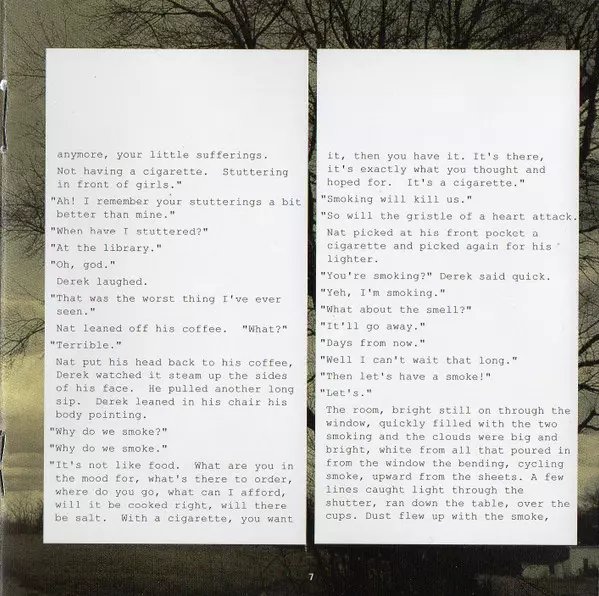 anymore, your little sufferings.
Not having a cigarette.  Stuttering
in front of girls."
"Ah! I remember your stutterings a bit
better than mine."
"When have I stuttered?"
"At the library."
"Oh, god."
Derek laughed.
"That was the worst thing I've ever
seen."
Nat leaned off his coffee.  "What?"
"Terrible."
Nat put his head back to his coffee,
Derek watched it steam up the sides
of his face.  He pulled another long
sip.  Derek leaned in his chair his
body pointing.
"Why do we smoke?"
"Why do we smoke."
"It's not like food.  What are you in
the mood for, what's there to order,
where do you go, what can I afford,
will it be cooked right, will there
be salt.  With a cigarette, you want
it, then you have it. It's there,
it's exactly what you thought and
hoped for.  It's a cigarette."
"Smoking will kill us."
"So will the gristle of a heart attack.
Nat picked at his front pocket a
cigarette and picked again for his
lighter.
"You're smoking?" Derek said quick.
"Yeh, I'm smoking."
"What about the smell?"
"It'll go away."
"Days from now."
"Well I can't wait that long."
"Then let's have a smoke!"
"Let's."
The room, bright still on through the
window, quickly filled with the two
smoking and the clouds were big and
bright, white from all that poured in
from the window the bending, cycling
smoke, upward from the sheets. A few
lines caught light through the
shutter, ran down the table, over the
cups. Dust flew up with the smoke,
7